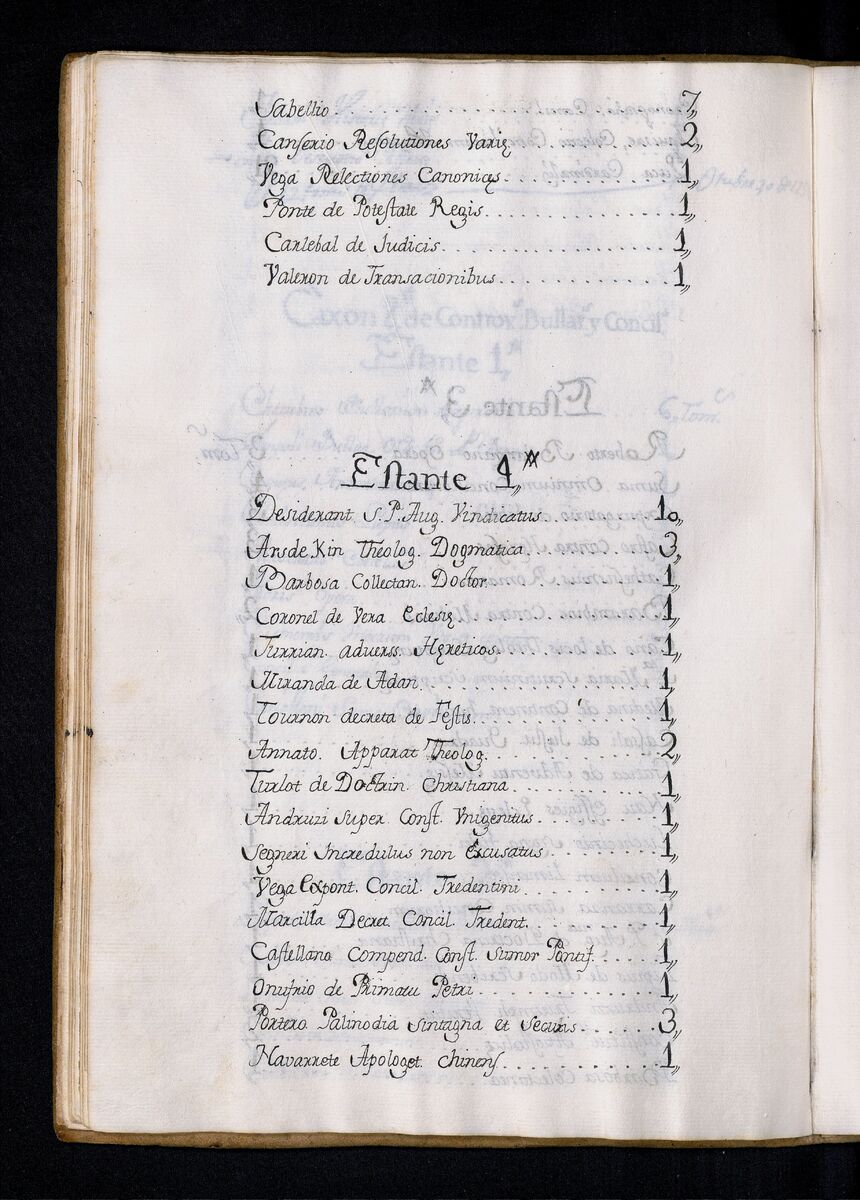 Sabellio . . . . . . . . . . 7,,
Canserio Resolutiones Varię 2,,
Vega Relectiones Canonicęs . . . . . . 1,,
Ponte de Potestate Regis . . . . . . 1,,
Carlebal de Judicis . . . . . . 1,,
Valeron de Transacionibus . . . . . . 1,,
Estante 4,,
Desiderant S. P. Aug. Vindicatus . . . . 10,,
Arsdekin Theolog. Dogmatica . . . . 3,,
Barbosa Collectan. Doctor . . . . 1,,
Coronel de Vera Eclesię . . . . 1,,
Turrian. adverss. Hęreticos . . . . 1,,
Miranda de Adan . . . . 1,,
Tournon decreta de Festis . . . . 1,,
Annato. Apparat Theolog . . . . 2,,
Turlot de Doctrin. Christiana . . . . 1,,
Andruzi super Const. Vnigenitus . . . . 1,,
Segneri Incredulus non Excusatus . . . . 1,,
Vega Expont. Concil. Tredentini . . . . 1,,
Marcilla Decret. Concil. Tredent . . . . 1,,
Castellano Compend. Const. Sumor Pontif. . . . . 1,,
Onufrio de Primatu Petri . . . . 1,,
Portero Palinodia sintagna et Securis . . . . 3,,
Navarrete Apologet. Chinens . . . . 1,,